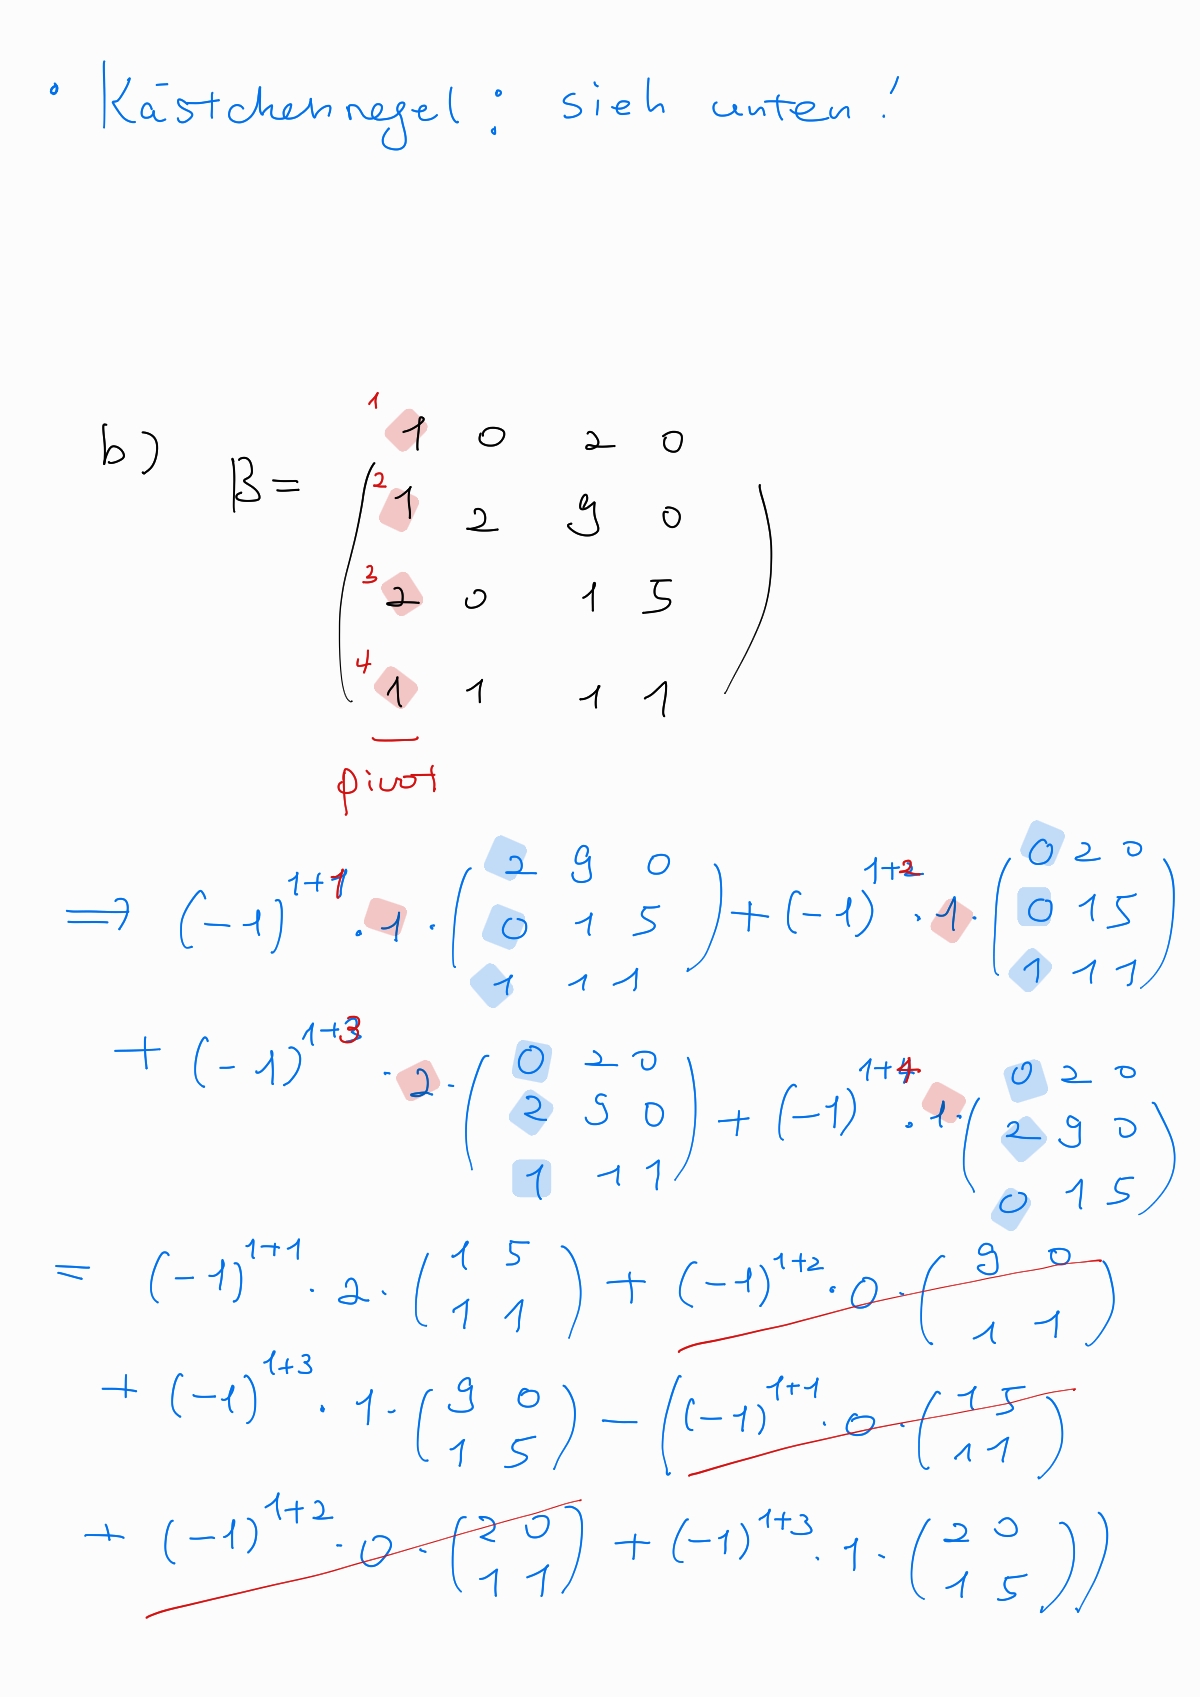 • Kästchenregel: sieh unten!
b) B =
1 1 0 2 0
2 1 2 9 0
3 2 0 1 5
4 1 1 1 1
pivot
⟹ (-1)^{1+1} · 1 · ( 2 9 0 ; 0 1 5 ; 1 1 1 ) + (-1)^{1+2} · 1 · ( 0 2 0 ; 0 1 5 ; 1 1 1 )
+ (-1)^{1+3} · 2 · ( 0 2 0 ; 2 9 0 ; 1 1 1 ) + (-1)^{1+4} · 1 · ( 0 2 0 ; 2 9 0 ; 0 1 5 )
= (-1)^{1+1} · 2 · ( 1 5 ; 1 1 ) + (-1)^{1+2} · 0 · ( 9 0 ; 1 1 )
+ (-1)^{1+3} · 1 · ( 9 0 ; 1 5 ) - ( (-1)^{1+1} · 0 · ( 1 5 ; 1 1 )
+ (-1)^{1+2} · 0 · ( 2 0 ; 1 1 ) + (-1)^{1+3} · 1 · ( 2 0 ; 1 5 ) )